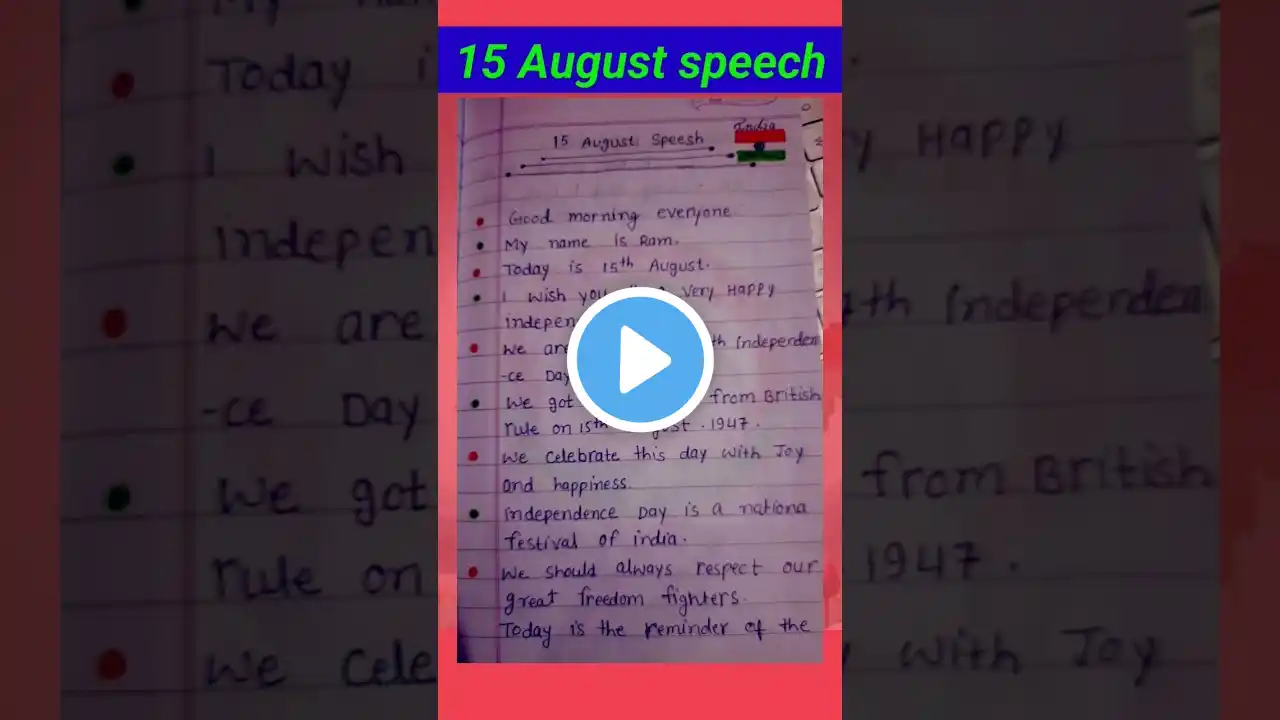 15 August speech
15 August Speesh
India
Good morning everyone.
My name is Ram.
Today is 15th August.
I wish you Very Happy
indepen
We are th independen
-ce Day
We got from British
rule on 15th August . 1947 .
We celebrate this day with Joy
and happiness.
independence Day is a nationa
festival of india.
We should always respect our
great freedom fighters.
Today is the reminder of the